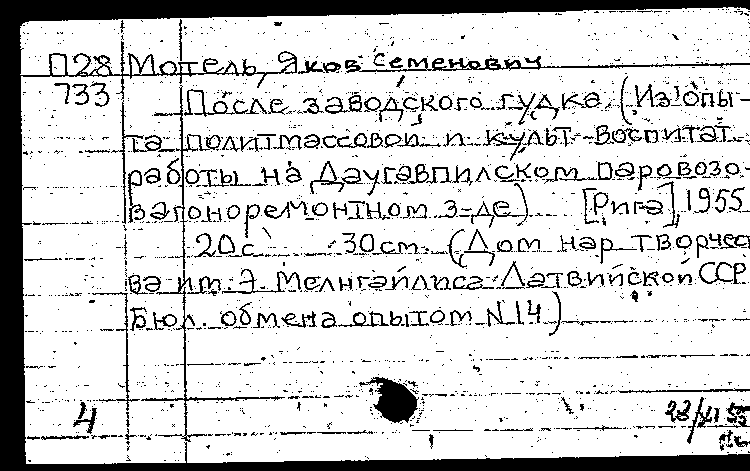 П28 Мотель, Яков Семенович
733 После заводского гудка (Из опы-
та политмассовой и культ-воспитат.
работы на Даугавпилском паровозо-
вагоноремонтном з-де) [Рига] 1955
20с 30см. (Дом нар творчес
ва им. Э. Мелнгайлиса Латвийской ССР
Бюл. обмена опытом N 14)
4